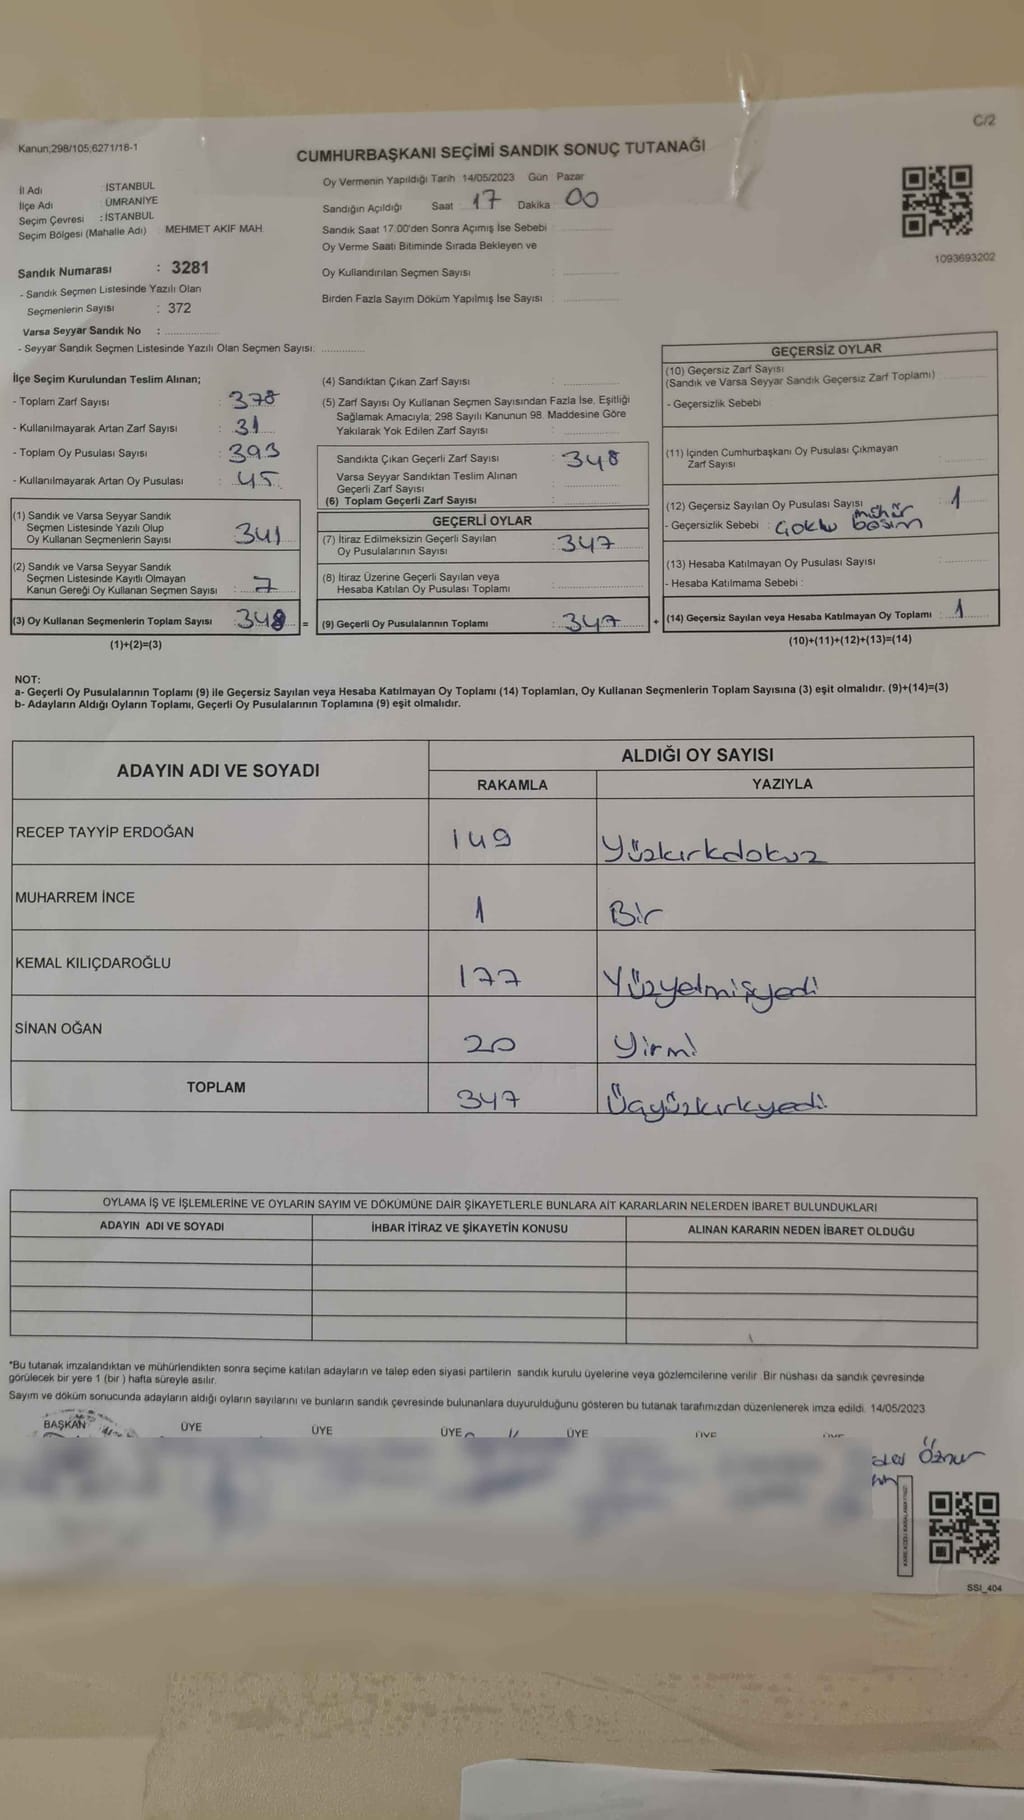 C/2
Kanun;298/105;6271/18-1
CUMHURBAŞKANI SEÇİMİ SANDIK SONUÇ TUTANAĞI
İl Adı : İSTANBUL
İlçe Adı : ÜMRANİYE
Seçim Çevresi : İSTANBUL
Seçim Bölgesi (Mahalle Adı) MEHMET AKİF MAH.
Sandık Numarası : 3281
- Sandık Seçmen Listesinde Yazılı Olan
Seçmenlerin Sayısı : 372
Varsa Seyyar Sandık No : ................
- Seyyar Sandık Seçmen Listesinde Yazılı Olan Seçmen Sayısı: ............
Oy Vermenin Yapıldığı Tarih :14/05/2023 Gün Pazar
Sandığın Açıldığı Saat 17 Dakika 00
Sandık Saat 17.00'den Sonra Açımış İse Sebebi :
Oy Verme Saati Bitiminde Sırada Bekleyen ve
Oy Kullandırılan Seçmen Sayısı :
Birden Fazla Sayım Döküm Yapılmış İse Sayısı :
1093693202
İlçe Seçim Kurulundan Teslim Alınan;
- Toplam Zarf Sayısı : 378
- Kullanılmayarak Artan Zarf Sayısı : 31
- Toplam Oy Pusulası Sayısı : 393
- Kullanılmayarak Artan Oy Pusulası : 45
(1) Sandık ve Varsa Seyyar Sandık
Seçmen Listesinde Yazılı Olup
Oy Kullanan Seçmenlerin Sayısı : 341
(2) Sandık ve Varsa Seyyar Sandık
Seçmen Listesinde Kayıtlı Olmayan
Kanun Gereği Oy Kullanan Seçmen Sayısı : 7
(3) Oy Kullanan Seçmenlerin Toplam Sayısı : 348 =
(1)+(2)=(3)
(4) Sandıktan Çıkan Zarf Sayısı :
(5) Zarf Sayısı Oy Kullanan Seçmen Sayısından Fazla İse, Eşitliği
Sağlamak Amacıyla; 298 Sayılı Kanunun 98. Maddesine Göre
Yakılarak Yok Edilen Zarf Sayısı :
Sandıkta Çıkan Geçerli Zarf Sayısı : 348
Varsa Seyyar Sandıktan Teslim Alınan
Geçerli Zarf Sayısı :
(6) Toplam Geçerli Zarf Sayısı :
GEÇERLİ OYLAR
(7) İtiraz Edilmeksizin Geçerli Sayılan
Oy Pusulalarının Sayısı : 347
(8) İtiraz Üzerine Geçerli Sayılan veya
Hesaba Katılan Oy Pusulası Toplamı :
(9) Geçerli Oy Pusulalarının Toplamı : 347 +
GEÇERSİZ OYLAR
(10) Geçersiz Zarf Sayısı
(Sandık ve Varsa Seyyar Sandık Geçersiz Zarf Toplamı)
- Geçersizlik Sebebi :
(11) İçinden Cumhurbaşkanı Oy Pusulası Çıkmayan
Zarf Sayısı
(12) Geçersiz Sayılan Oy Pusulası Sayısı : 1
- Geçersizlik Sebebi : Çoklu mühür basım
(13) Hesaba Katılmayan Oy Pusulası Sayısı
- Hesaba Katılmama Sebebi :
(14) Geçersiz Sayılan veya Hesaba Katılmayan Oy Toplamı : 1
(10)+(11)+(12)+(13)=(14)
NOT:
a- Geçerli Oy Pusulalarının Toplamı (9) ile Geçersiz Sayılan veya Hesaba Katılmayan Oy Toplamı (14) Toplamları, Oy Kullanan Seçmenlerin Toplam Sayısına (3) eşit olmalıdır. (9)+(14)=(3)
b- Adayların Aldığı Oyların Toplamı, Geçerli Oy Pusulalarının Toplamına (9) eşit olmalıdır.
ADAYIN ADI VE SOYADI
ALDIĞI OY SAYISI
RAKAMLA YAZIYLA
RECEP TAYYİP ERDOĞAN 149 Yüzkırkdokuz
MUHARREM İNCE 1 Bir
KEMAL KILIÇDAROĞLU 177 Yüzyetmişyedi
SİNAN OĞAN 20 Yirmi
TOPLAM 347 Üçyüzkırkyedi
OYLAMA İŞ VE İŞLEMLERİNE VE OYLARIN SAYIM VE DÖKÜMÜNE DAİR ŞİKAYETLERLE BUNLARA AİT KARARLARIN NELERDEN İBARET BULUNDUKLARI
ADAYIN ADI VE SOYADI İHBAR İTİRAZ VE ŞİKAYETİN KONUSU ALINAN KARARIN NEDEN İBARET OLDUĞU
*Bu tutanak imzalandıktan ve mühürlendikten sonra seçime katılan adayların ve talep eden siyasi partilerin sandık kurulu üyelerine veya gözlemcilerine verilir. Bir nüshası da sandık çevresinde
görülecek bir yere 1 (bir) hafta süreyle asılır.
Sayım ve döküm sonucunda adayların aldığı oyların sayılarını ve bunların sandık çevresinde bulunanlara duyurulduğunu gösteren bu tutanak tarafımızdan düzenlenerek imza edildi. 14/05/2023
BAŞKAN ÜYE ÜYE ÜYE ÜYE ÜYE ÜYE
Öznur
SSI_404